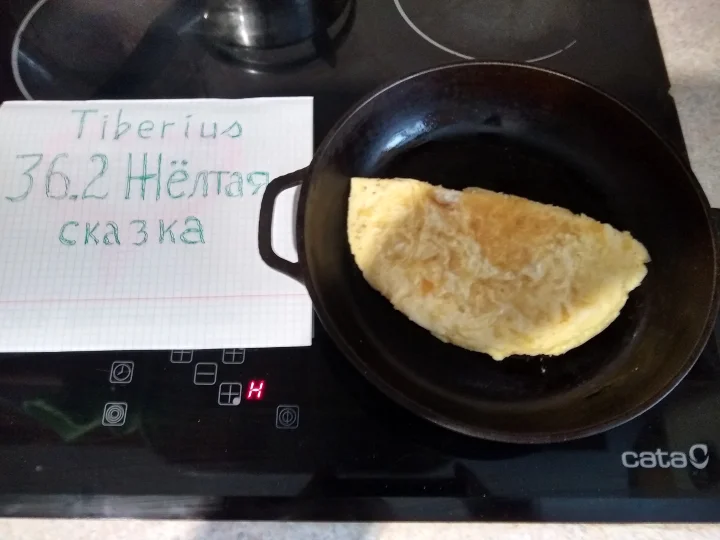 Tiberius
36.2 Жёлтая
сказка
H
cata